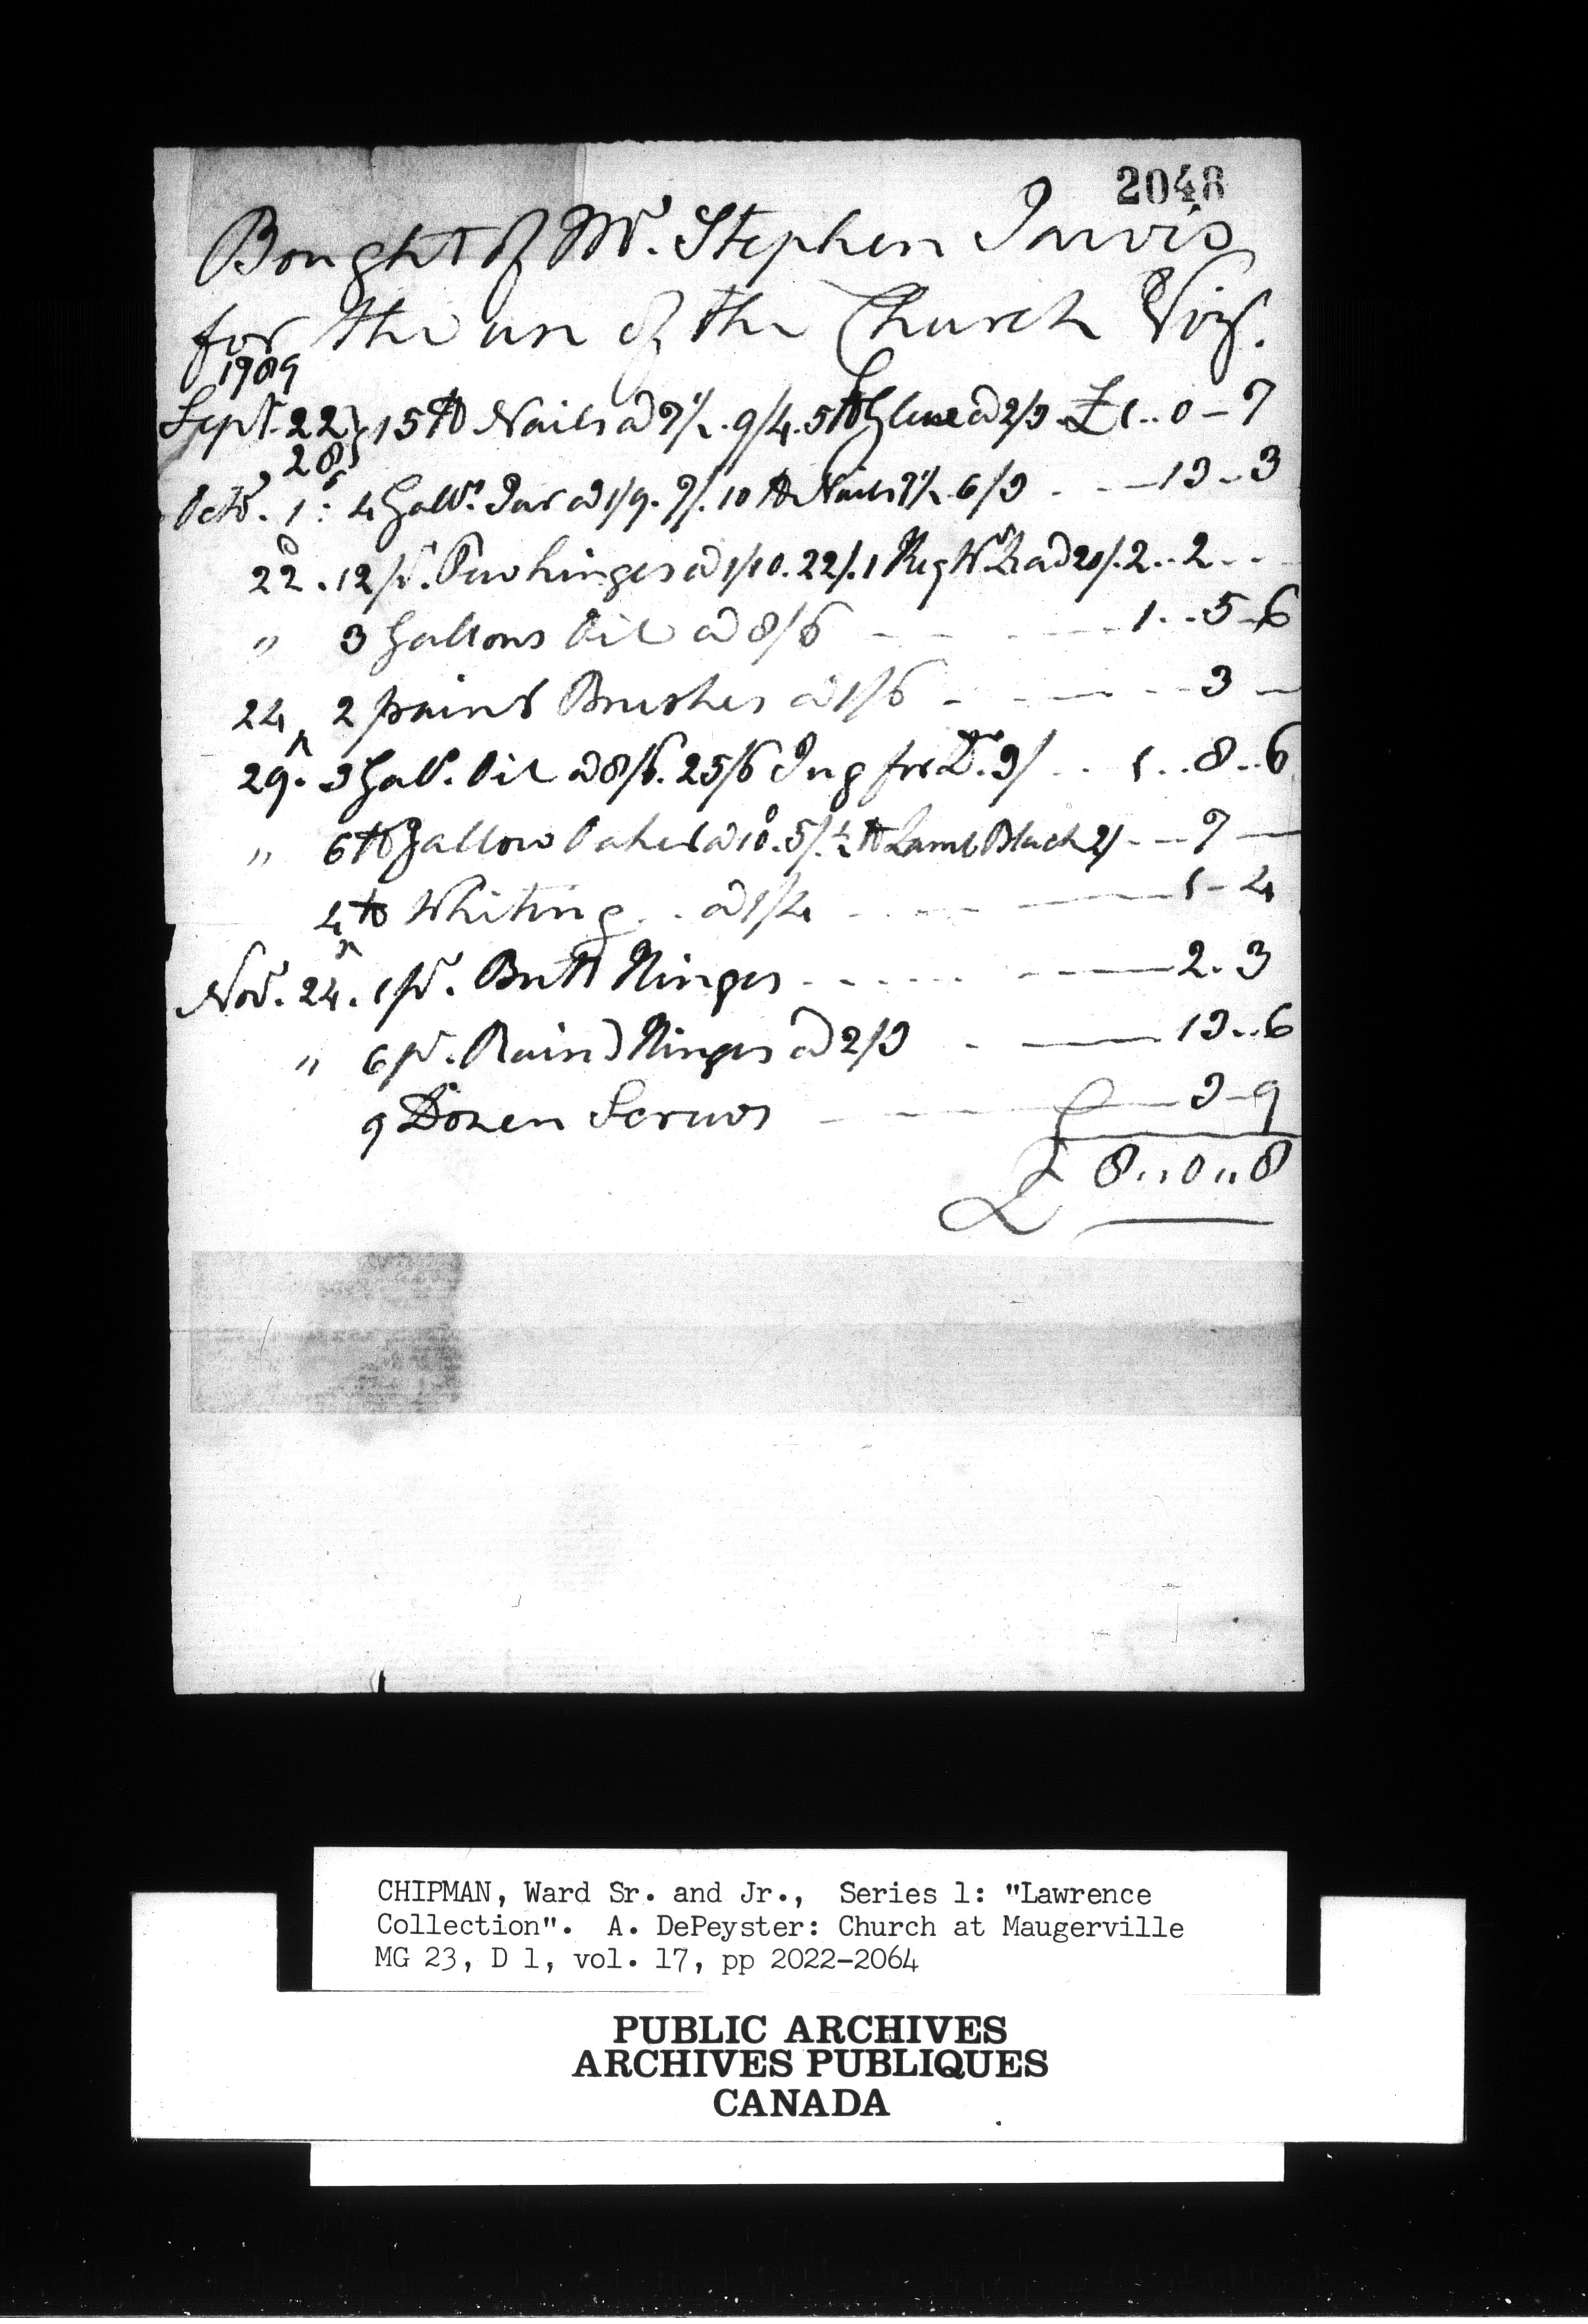 2048
Bought of Mr. Stephen Jarvis
for the use of the Church Viz.
1789
Sept. 22} 15 lb Nails @ 7½. 9/4. 5 lb Glue @ 2/3. £1..0-7
28}
Octr. 1: 4 Galls. Tar @ 1/9. 7/. 10 lb Nails 7½. 6/3 - - 13..3
22. 12 pr. Pew hinges @ 1/10. 22/. 1 Keg Wt. Lead 20/. 2..2..
" 3 Gallons Oil @ 8/6 - - - 1..5-6
24 2 paint Brushes @ 1/6 - - - 3 -
29. 3 Gall. Oil @ 8/6. 25/6 Jug for Do. 3/ - 1..8..6
" 6 lb Yallow Oaker @ 10d. 5/. ½ lb Lamb Black 2/ - - 7 -
4 lb Whiting .. @ 1/4 - - - 1-4
Novr. 24. 1 pr. Butt Hinges - - - 2.3
" 6 pr. Rais'd Hinges @ 2/3 - - 13..6
9 Dozen Screws - - - 3-9
£ 8..0..8
CHIPMAN, Ward Sr. and Jr., Series 1: "Lawrence
Collection". A. DePeyster: Church at Maugerville
MG 23, D 1, vol. 17, pp 2022-2064
PUBLIC ARCHIVES
ARCHIVES PUBLIQUES
CANADA